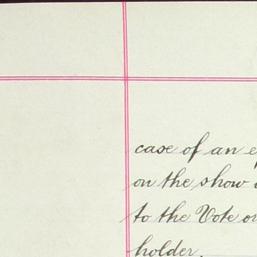 case of an
on the show
to the Vote
holder.